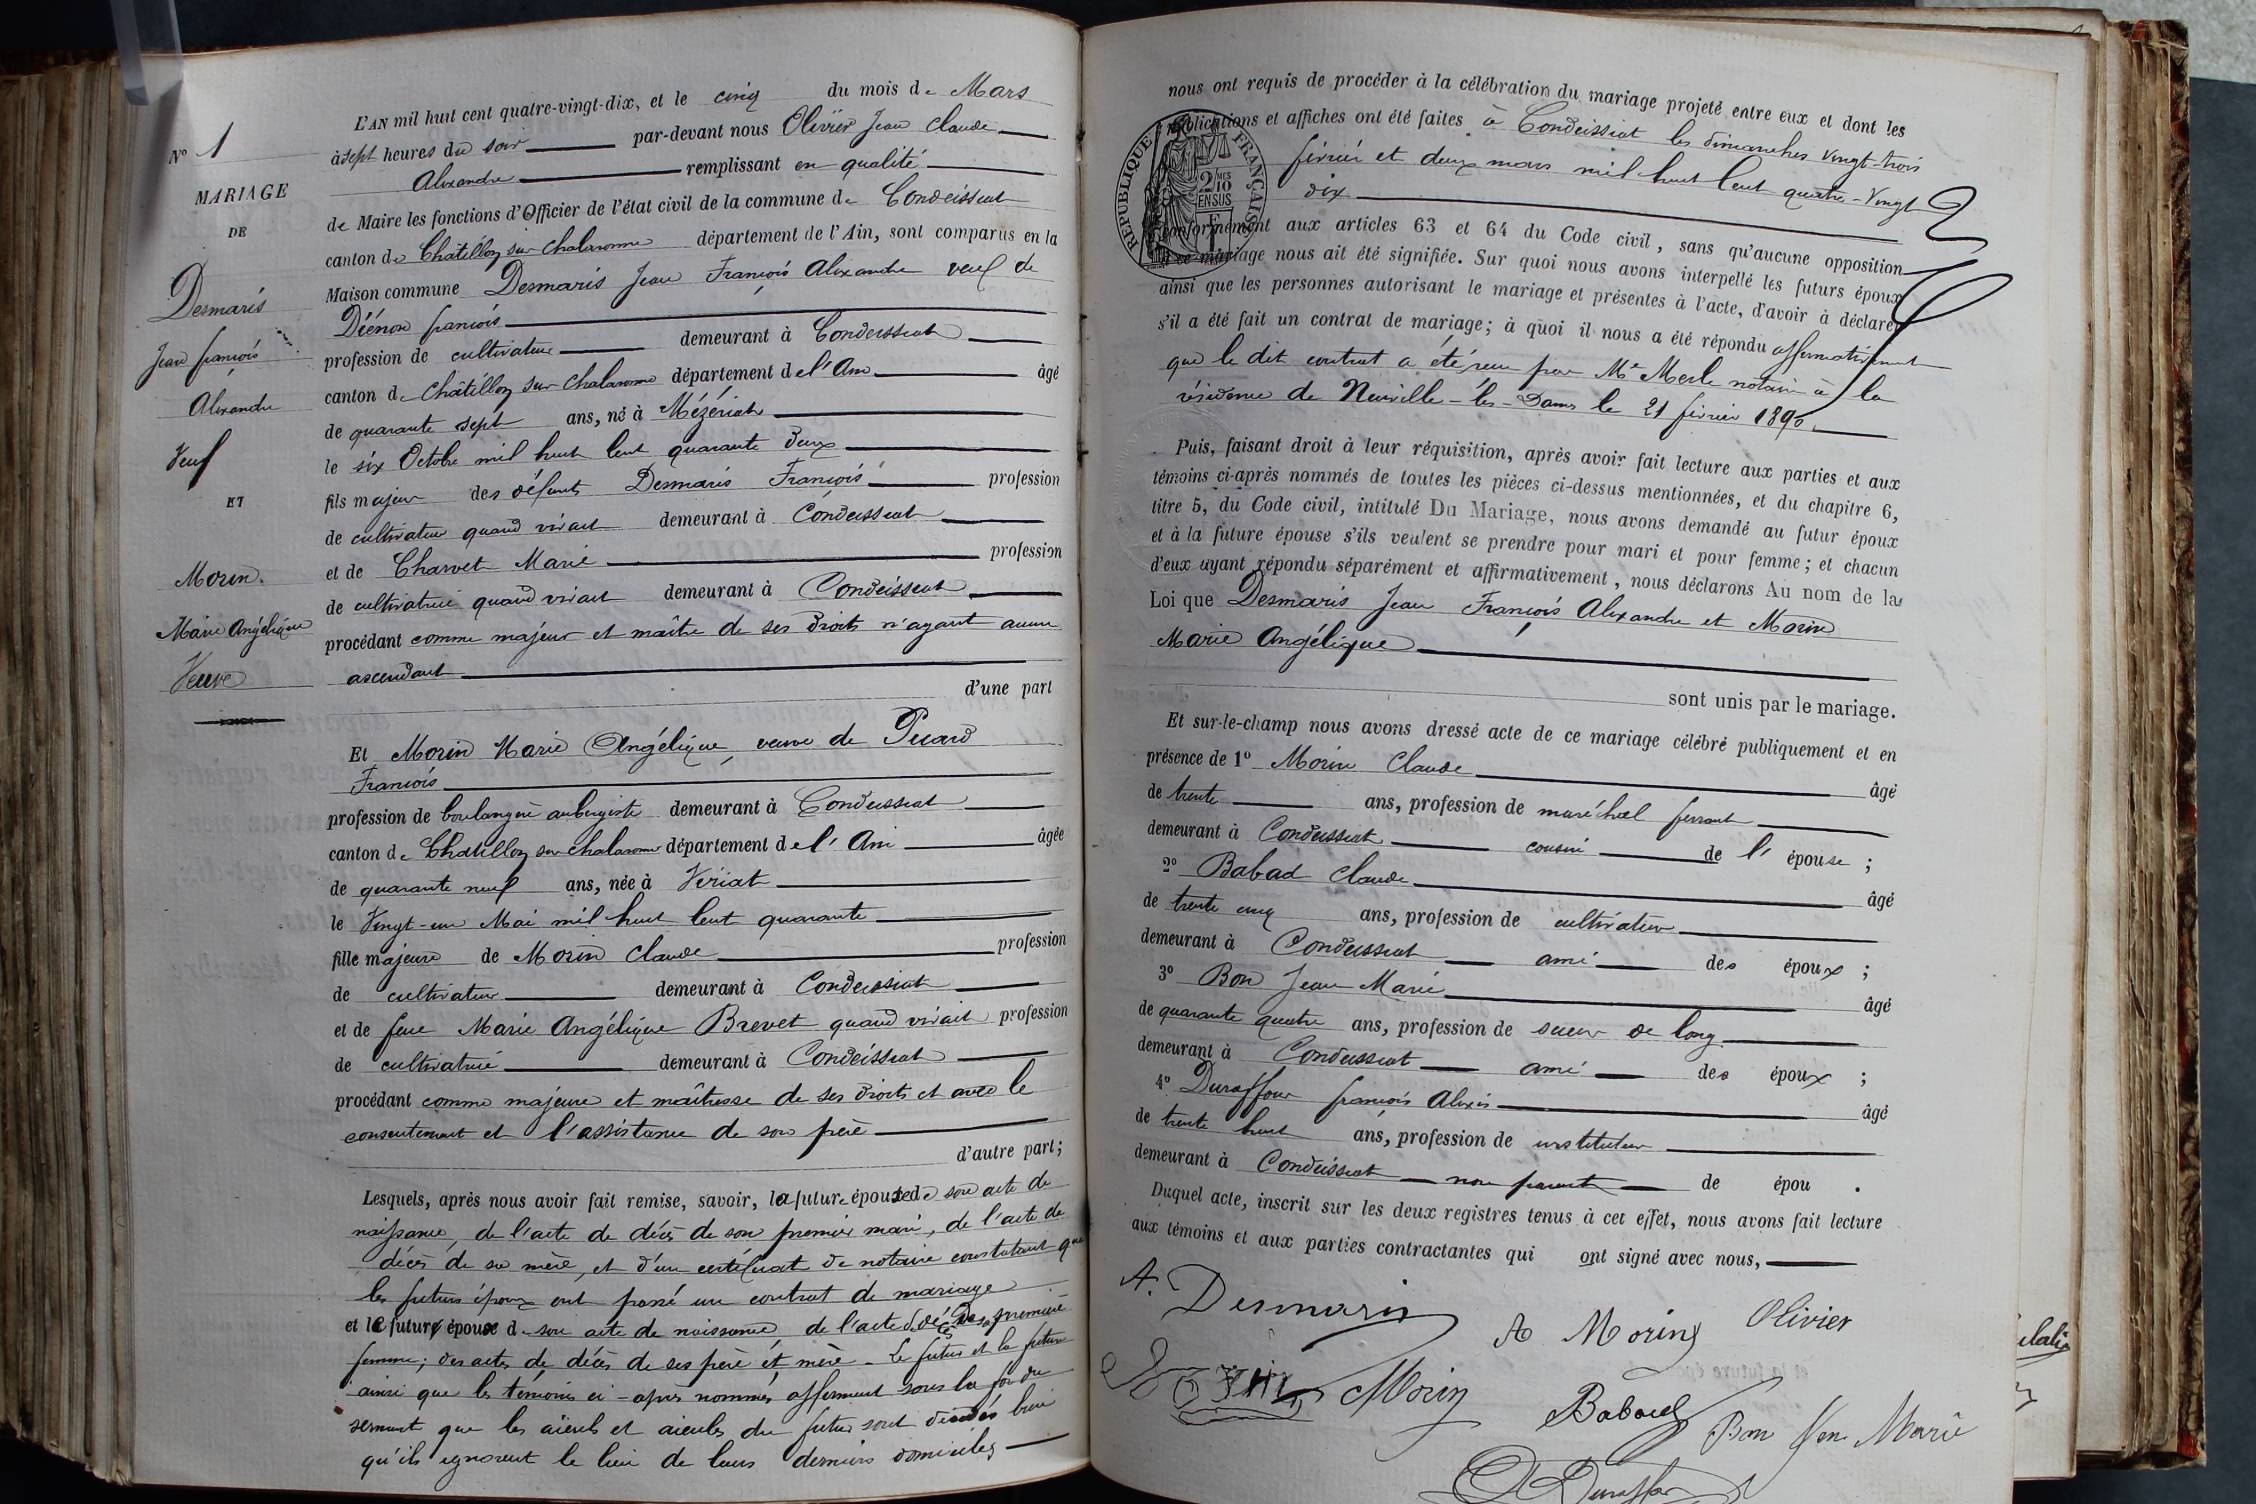 N° 1
MARIAGE
DE
Desmaris
Jean françois
Alexandre
Veuf
ET
Morin
Marie Angélique
Veuve
L'AN mil huit cent quatre-vingt-dix, et le cinq du mois de Mars
à sept heures du soir par-devant nous Olivier Jean Claude
Alexandre remplissant en qualité
de Maire les fonctions d'Officier de l'état civil de la commune de Condeissiat
canton de Châtillon sur Chalaronne département de l'Ain, sont comparus en la
Maison commune Desmaris Jean François Alexandre veuf de
françois
profession de cultivateur demeurant à Condeissiat
canton de Châtillon sur Chalaronne département de l'Ain âgé
de quarante sept ans, né à Mézériat
le six Octobre mil huit Cent quarante deux
fils majeur des défunts Desmaris François profession
de cultivateur quand vivait demeurant à Condeissiat
et de Charvet Marie profession
de cultivatrice quand vivait demeurant à Condeissiat
procédant comme majeur et maître de ses droits n'ayant aucun
ascendant
d'une part
Et Morin Marie Angélique, veuve de
François
profession de boulangère aubergiste demeurant à Condeissiat
canton de Châtillon sur Chalaronne département de l'Ain âgée
de quarante neuf ans, née à Vériat
le Vingt-un Mai mil huit Cent quarante
fille majeure de Morin Claude profession
de cultivateur demeurant à Condeissiat
et de feue Marie Angélique Brevet quand vivait profession
de cultivatrice demeurant à Condeissiat
procédant comme majeure et maîtresse de ses droits et avec le
consentement et l'assistance de son père
d'autre part;
Lesquels, après nous avoir fait remise, savoir, la future épouse de son acte de
naissance, de l'acte de décès de son premier mari, de l'acte de
décès de sa mère, et d'un certificat de notaire constatant que
les futurs époux ont passé un contrat de mariage
et le futur époux de son acte de naissance de l'acte de décès de sa première
femme; des actes de décès de ses père et mère - Le futur et la future
ainsi que les témoins ci-après nommés, affirment sous la foi du
serment que les aïeuls et aïeules du futur sont décédés
qu'ils ignorent le lieu de leurs derniers domiciles
nous ont requis de procéder à la célébration du mariage projeté entre eux et dont les
publications et affiches ont été faites à Condeissiat les dimanches vingt-trois
février et deux mars mil huit Cent quatre-Vingt
dix
conformément aux articles 63 et 64 du Code civil, sans qu'aucune opposition
à ce mariage nous ait été signifiée. Sur quoi nous avons interpellé les futurs époux
ainsi que les personnes autorisant le mariage et présentes à l'acte, d'avoir à déclarer
s'il a été fait un contrat de mariage; à quoi il nous a été répondu affirmativement
que le dit contrat a été reçu par Me Merle notaire à la
résidence de Neuville-les-Dames le 21 février 1890.
RÉPUBLIQUE FRANÇAISE
2/10MES
EN SUS
Puis, faisant droit à leur réquisition, après avoir fait lecture aux parties et aux
témoins ci-après nommés de toutes les pièces ci-dessus mentionnées, et du chapitre 6,
titre 5, du Code civil, intitulé Du Mariage, nous avons demandé au futur époux
et à la future épouse s'ils veulent se prendre pour mari et pour femme; et chacun
d'eux ayant répondu séparément et affirmativement, nous déclarons Au nom de la
Loi que Desmaris Jean François Alexandre et Morin
Marie Angélique
sont unis par le mariage.
Et sur-le-champ nous avons dressé acte de ce mariage célébré publiquement et en
présence de 1° Morin Claude âgé
de trente ans, profession de maréchal ferrant
demeurant à Condeissiat cousin de l'épouse;
2° Babad Claude âgé
de trente cinq ans, profession de cultivateur
demeurant à Condeissiat ami des époux;
3° Bon Jean Marie âgé
de quarante quatre ans, profession de scieur de long
demeurant à Condeissiat ami des époux;
4° Duraffour françois Alexis âgé
de trente huit ans, profession de instituteur
demeurant à Condeissiat non parent de épou .
Duquel acte, inscrit sur les deux registres tenus à cet effet, nous avons fait lecture
aux témoins et aux parties contractantes qui ont signé avec nous,
A. Desmaris
A Morin
Olivier
Morin
Babad
Bon Jean Marie
Duraffour